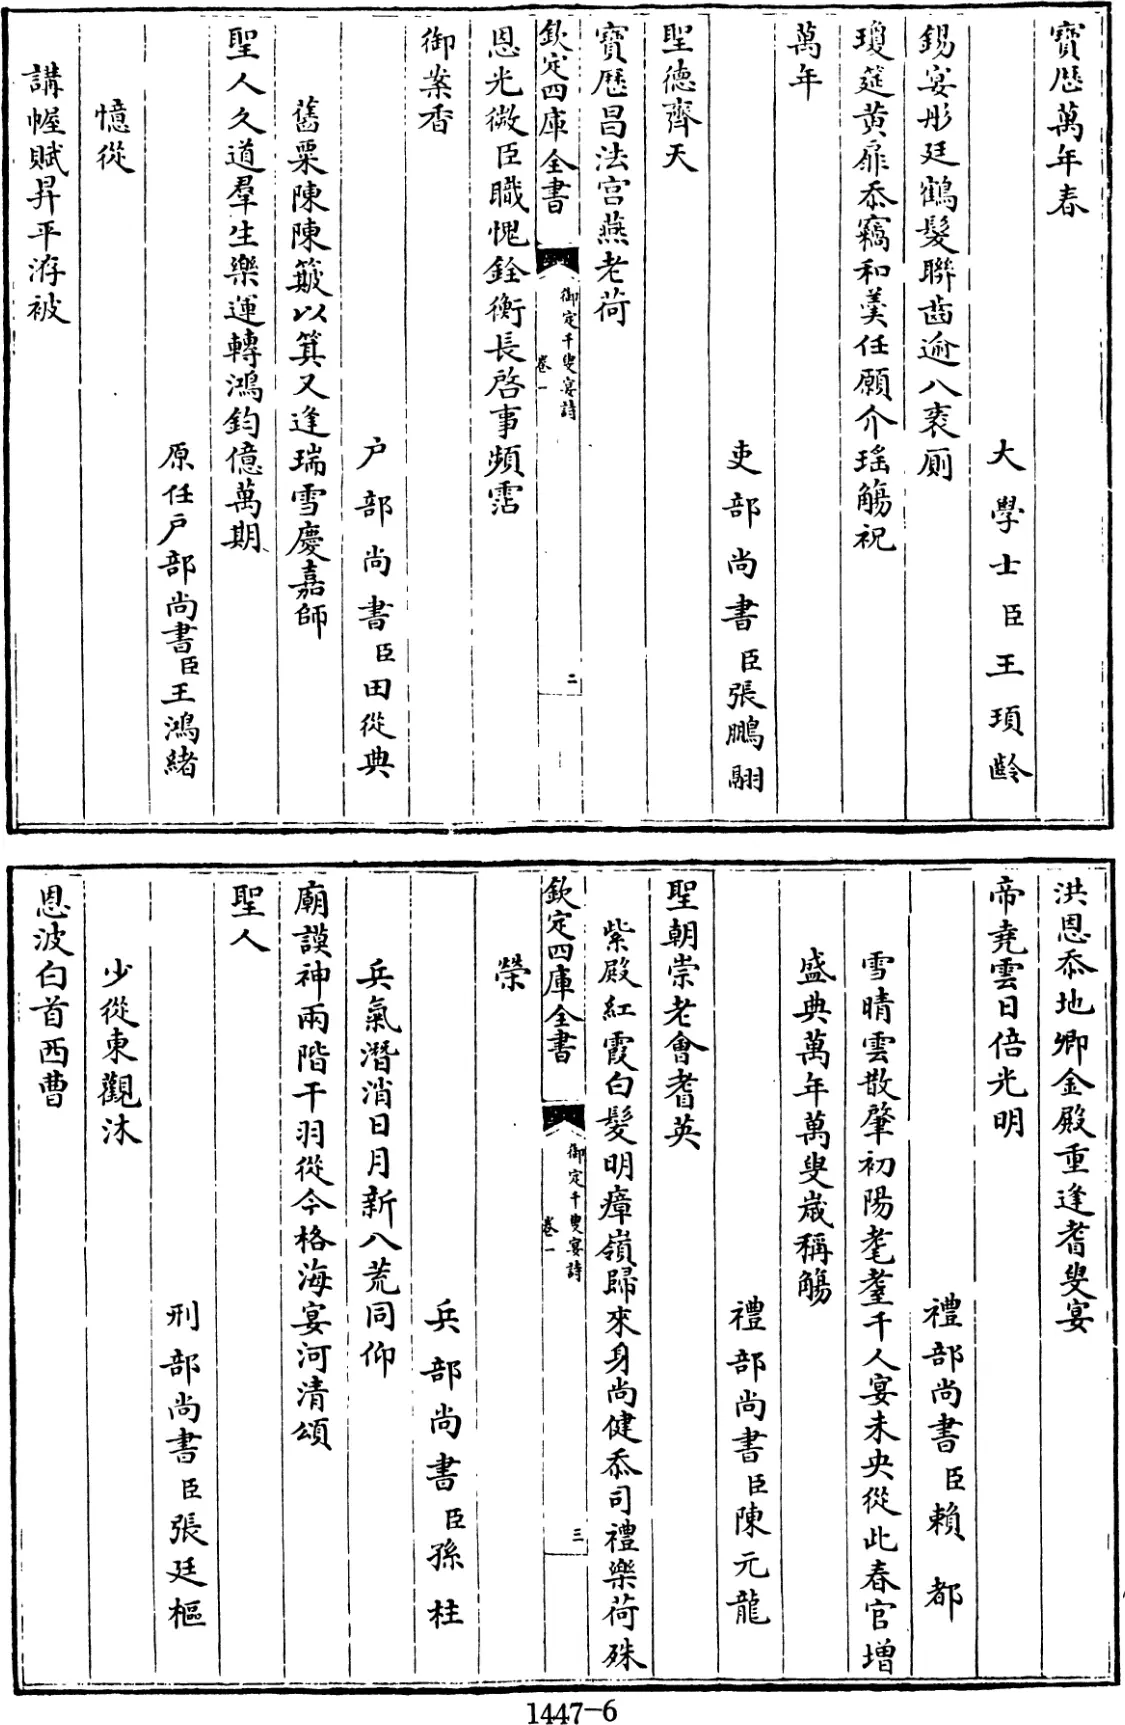 寶厯萬年春
大學士臣王頊齡
錫宴彤廷鶴髮聯齒逾八袠厠
瓊筵黄扉忝竊和羹任願介瑤觴祝
萬年
吏部尚書臣張鵬翮
聖德齊天
寶厯昌法宫燕老荷
欽定四庫全書
御定千叟宴詩
卷一
二
恩光微臣職愧銓衡長啓事頻霑
御案香
户部尚書臣田從典
舊粟陳陳簸以箕又逢瑞雪慶嘉師
聖人久道羣生樂運轉鴻鈞億萬期
原任户部尚書臣王鴻緒
憶從
講幄賦昇平洊被
洪恩忝地卿金殿重逢耆叟宴
帝堯雲日倍光明
禮部尚書臣賴都
雪晴雲散肇初陽耄耋千人宴未央從此春官增
盛典萬年萬叟嵗稱觴
禮部尚書臣陳元龍
聖朝崇老會耆英
紫殿紅霞白髮明瘴嶺歸來身尚健忝司禮樂荷殊
欽定四庫全書
御定千叟宴詩
卷一
三
榮
兵部尚書臣孫柱
兵氣潛消日月新八荒同仰
廟謨神兩階干羽從今格海宴河清頌
聖人
刑部尚書臣張廷樞
少從東觀沐
恩波白首西曹
1447-6